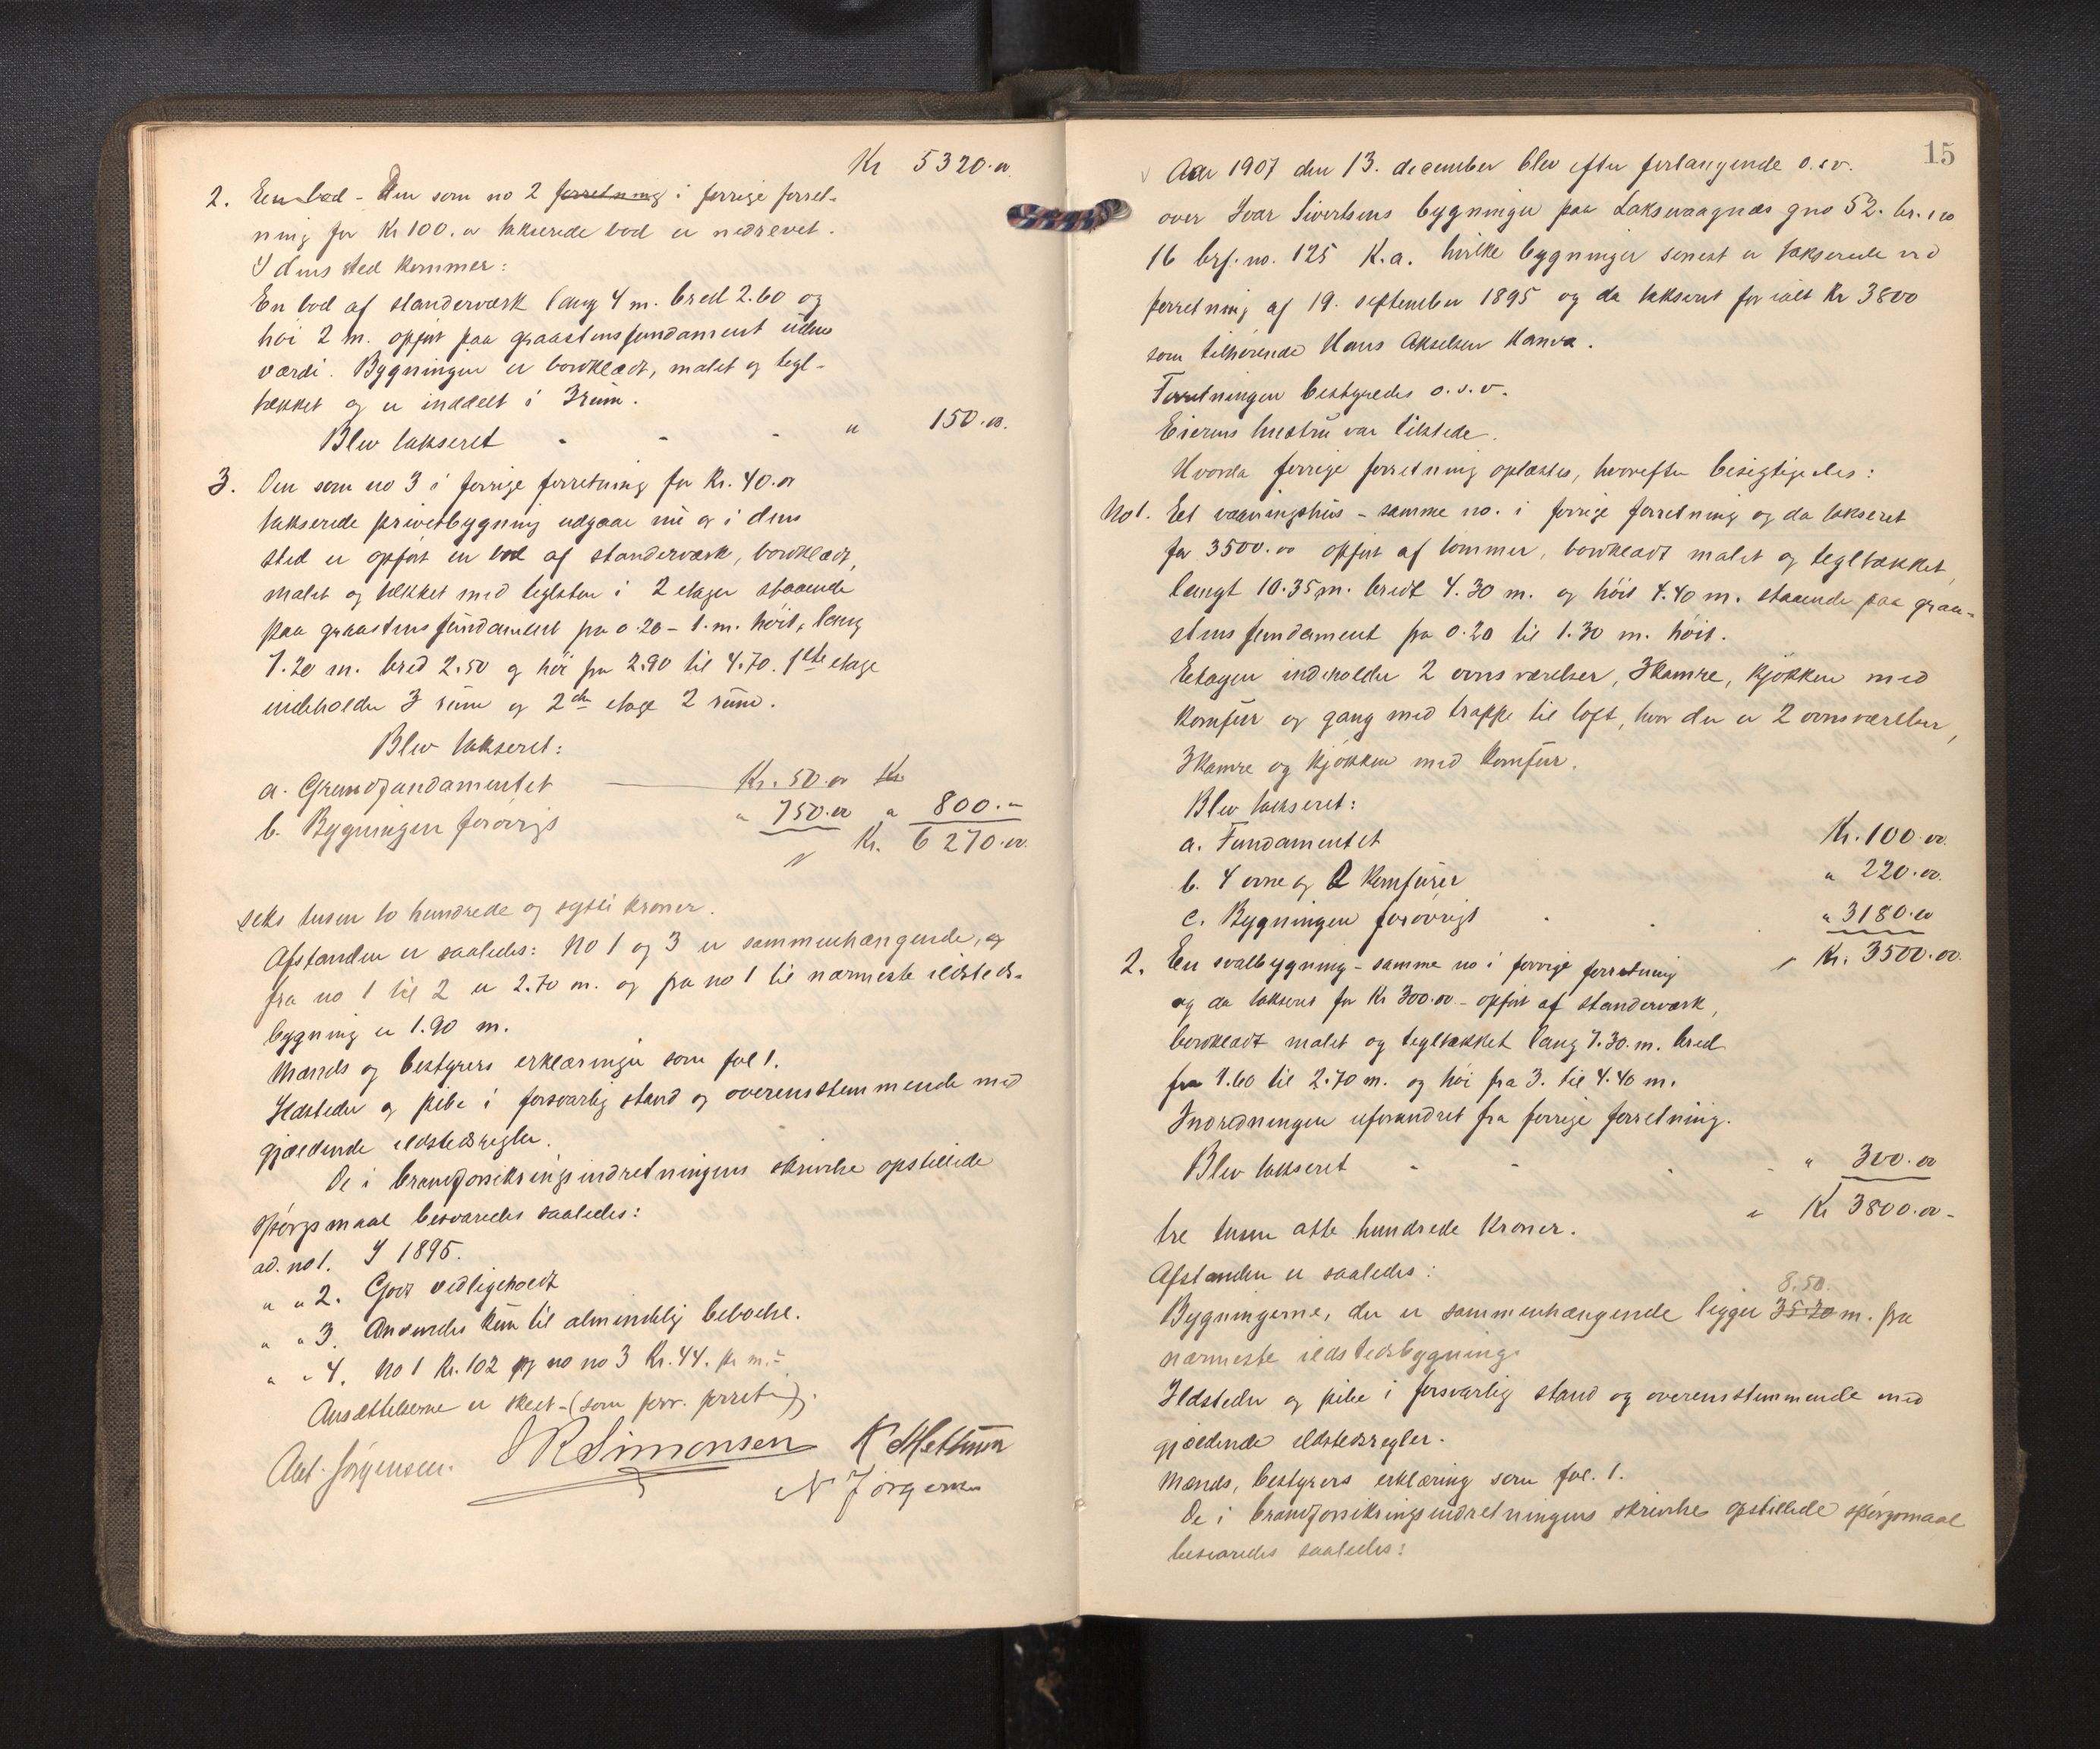 Kr 5320.00
2. En bod - Den som no 2 forretning i forrige forret-
ning for Kr 100.00 takserede bod er nedrevet.
I dens sted kommer:
En bod af standerværk lang 4 m. bred 2.60 og
höi 2 m. opfört paa graastensfundament uden
værdi. Bygningen er bordklædt, malet og tegl-
tækket og er inddelt i 3 rum.
Blev takseret - - - " 150.00.
3. Den som no 3 i forrige forretning for Kr. 40.00
takserede privetbygning udgaar nu og i dens
sted er opfört en bod af standerværk, bordklædt,
malet og tækket med teglsten i 2 etager staaende
paa graastensfundament fra 0.20 - 1. m. höit, lang
7.20 m. bred 2.50 og höi fra 2.90 til 4.70. 1ste etage
indeholder 3 rum og 2den etage 2 rum.
Blev takseret:
a. Grundfundamentet Kr. 50.00 Kr
b. Bygningen forövrigt " 750.00 " 800.-
Kr. 6270.00.
seks tusen to hundrede og sytti kroner.
Afstanden er saaledes: No 1 og 3 er sammenhængende, og
fra no 1 til 2 er 2.70 m. og fra no 1 til nærmeste ildsteds-
bygning er 1.90 m.
Mænds og bestyrers erklæringer som fol 1.
Ildsteder og pibe i forsvarlig stand og overensstemmende med
gjældende ildstedsregler.
De i brandforsikringsindretningens skrivelse opstillede
spörgsmaal besvaredes saaledes:
ad. no 1. I 1895.
" " 2. Godt vedligeholdt
" " 3. Anvendes kun til almindelig beboelse.
" " 4. No 1 Kr. 102 og no no 3 Kr. 44. pr m.2
Ansættelserne er skeet - (som forr. forretn).
Ant. Jörgensen. J R Simonsen K Mettum
N Jörgensen
15
Aar 1907 den 13. december blev efter forlangende o.s.v.
over Ivar Sivertsens bygninger paa Laksevaagnæs gno 52. br. no
16 brf. no. 125 K.a. hvilke bygninger senest er takserede ved
forretning af 19. september 1895 og da takseret for ialt Kr 3800
som tilhörende Hans Akselsen Kanva.
Forretningen bestyredes o.s.v.
Eierens hustru var tilstede.
Hvorda forrige forretning oplæstes, hvorefter besigtigedes:
No 1. Et vaaningshus - samme no. i forrige forretning og da takseret
for 3500.00 opfört af tömmer, bordklædt malet og tegltækket,
langt 10.35 m. bredt 7.30 m. og höit 4.40 m. staaende paa graa-
stensfundament fra 0.20 til 1.30 m. höit.
Etagen indeholder 2 ovnsværelser, 3 kamre, kjökken med
komfur og gang med trappe til loft, hvor der er 2 ovnsværelser,
3 kamre og kjökken med komfur.
Blev takseret:
a. Fundamentet Kr. 100.00
b. 4 ovne og 2 komfurer " 220.00.
c. Bygningen forövrigt - - " 3180.00
Kr. 3500.00.
2. En svalbygning - samme no i forrige forretning
og da takseret for Kr 300.00 - opfört af standerværk,
bordklædt malet og tegltækket lang 7.30. m. bred
fra 1.60 til 2.70 m. og höi fra 3. til 4.40 m.
Inredningen uforandret fra forrige forretning.
Blev takseret - - - - " 300.00
Kr 3800.00 -
tre tusen otte hundrede kroner.
Afstanden er saaledes:
8.50.
Bygningerne, der er sammenhængende ligger 35.70 m. fra
nærmeste ildstedsbygning.
Ildsteder og pibe i forsvarlig stand og overensstemmende med
gjældende ildstedsregler.
Mænds, bestyrers erklæring som fol. 1.
De i brandforsikringsindretningens skrivelse opstillede spörgsmaal
besvaredes saaledes: